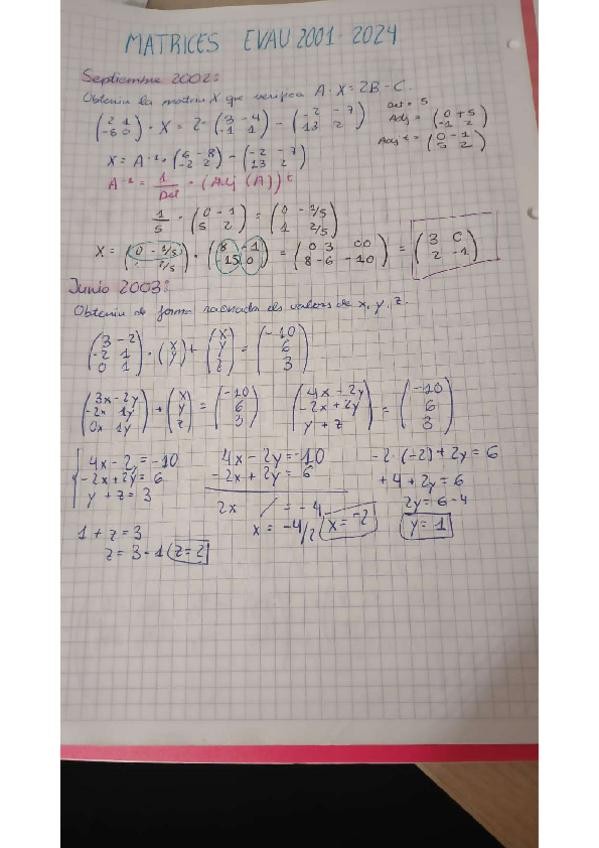 MATRICES EVAU 2001-2024
Septiembre 2002:
Obtenin la matriu X que verifica A·X = 2B - C.
(2 1 / -5 0) · X = 2· (3 -4 / -1 1) - (-2 -7 / 13 2)
Det = 5
Adj = (0 +5 / -1 2)
Adj t = (0 -1 / 5 2)
X = A⁻¹ · (6 -8 / -2 2) - (-2 -7 / 13 2)
A⁻¹ = 1/Det · (Adj (A)) t
1/5 · (0 -1 / 5 2) = (0 -1/5 / 1 2/5)
X = (0 -1/5 / 2/5) · (8 -1 / -15 0) = (0 3 00 / 8-6 -10) = (3 0 / 2 -1)
Junio 2003:
Obtenin de forma raonada els valors de x, y, z.
(3 -2 / -2 1 / 0 1) · (x / y) + (x / y / z) = (-10 / 6 / 3)
(3x -2y / -2x 1y / 0x 1y) + (x / y / z) = (-10 / 6 / 3)
(4x - 2y / -2x + 2y / y + z) = (-10 / 6 / 3)
4x - 2 = -10
-2x + 2y = 6
y + z = 3
4x - 2y = -10
-2x + 2y = 6
2x / = -4
x = -4/2 x = -2
-2·(-2) + 2y = 6
+4 + 2y = 6
2y = 6-4
y = 1
1 + z = 3
z = 3-1 z = 2